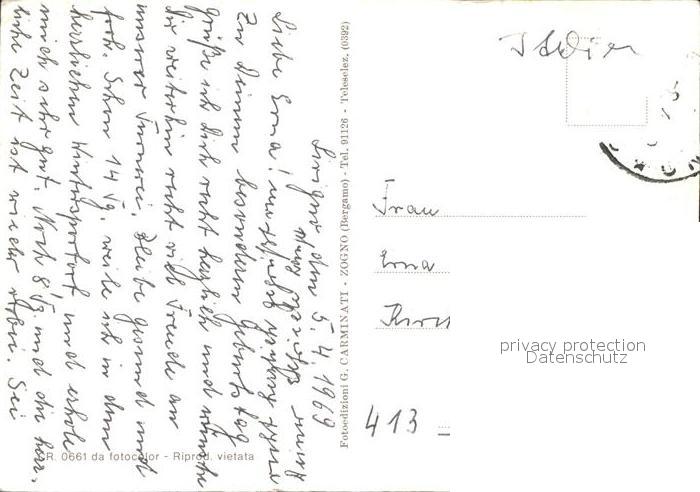 Livigno den 5.4.1969
Liebe Erna!
Zu Deinem besonderen Geburtstag
grüße ich Dich recht herzlich und wünsche
Dir weiterhin recht viel Freude an
unserer Bleibe gesund und
froh. Schon 14 Tg. weile ich in dem
herrlichen Wintersportort und erhole
mich sehr gut. Noch 8 Tg. und die herr-
liche Zeit ist wieder vorbei. Sei
Fotoedizioni G. CARMINATI - ZOGNO (Bergamo) - Tel. 91126 - Teleselez. (0392)
R. 0661 da fotocolor - Riprod. vietata
Frau
Erna
413
privacy protection
Datenschutz